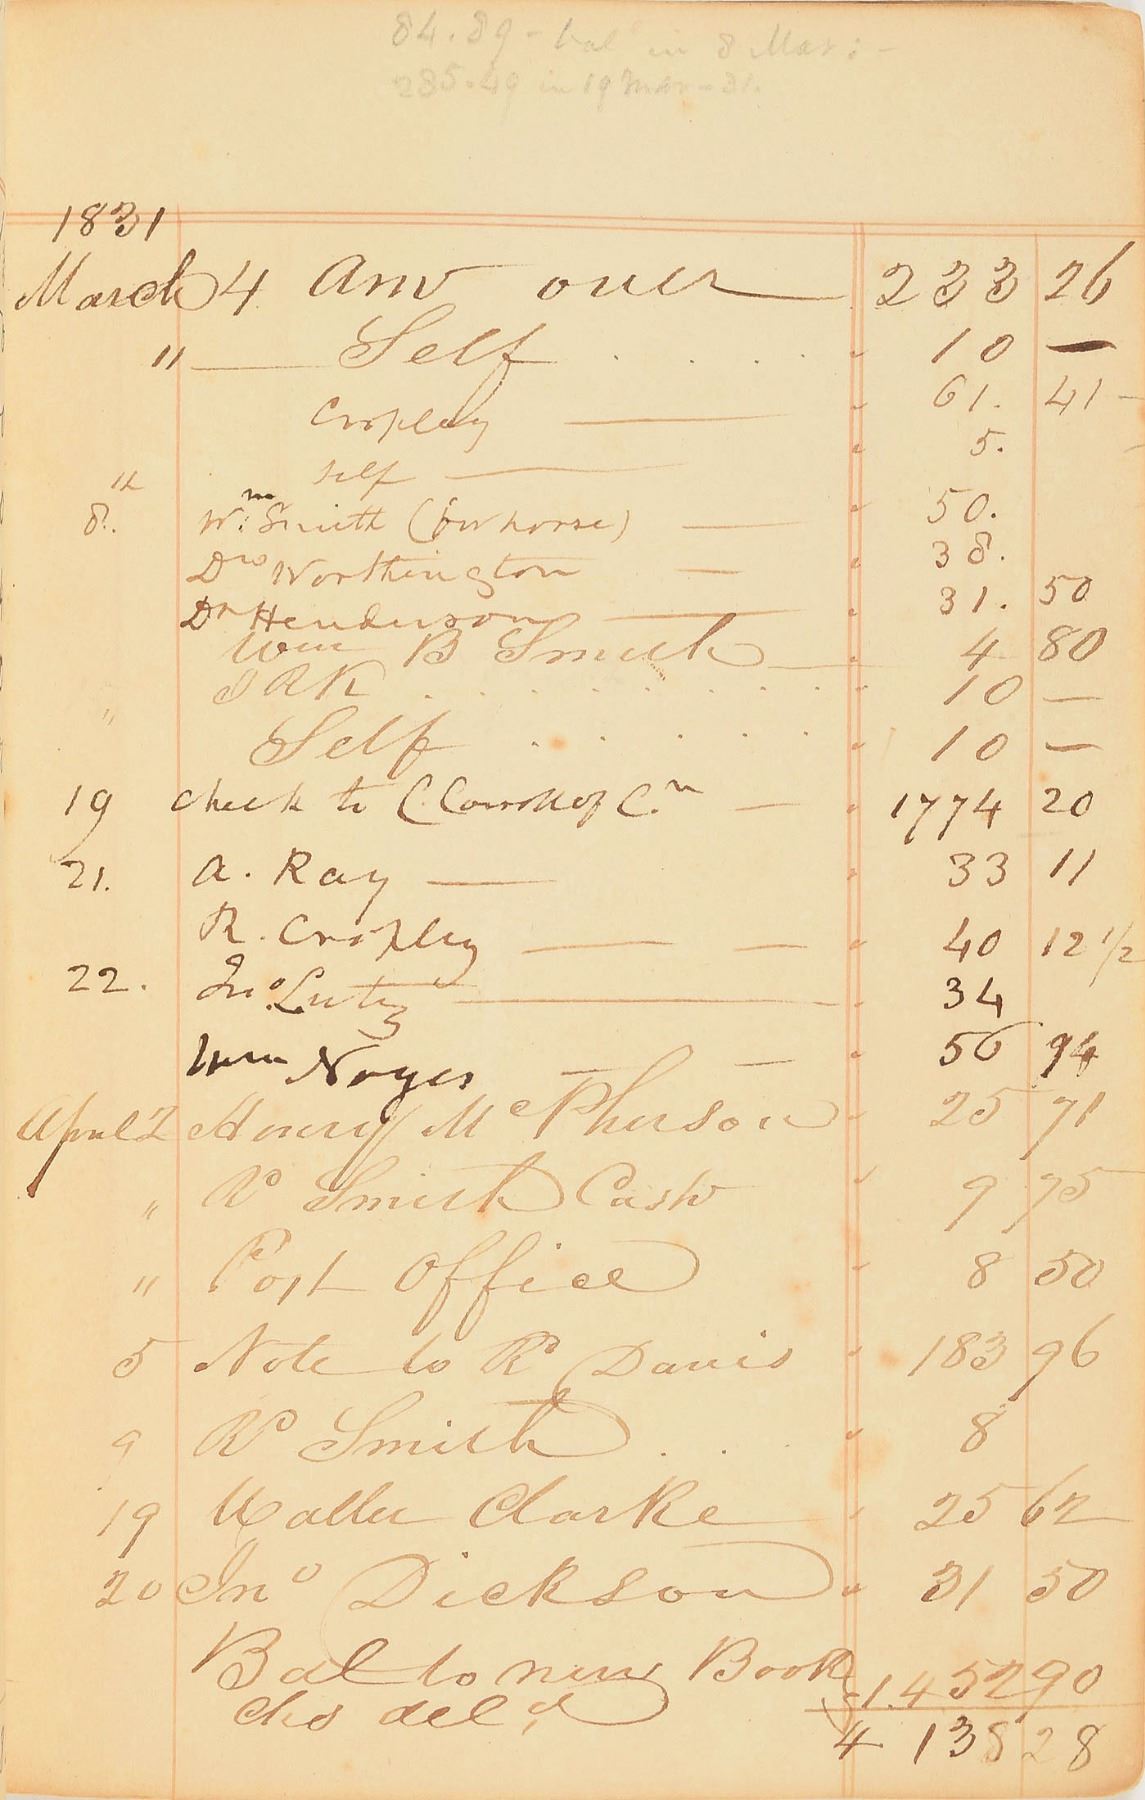 84.89 - bal in 8 Mar: -
285.49 in 19 Mar - 31.
1831
March 4 Amt over 233 26
" Self 10 —
Cropley 61. 41 -
Self 5.
"
8. Wm Smith (for horse) 50.
Dro Worthington 38.
Dr Henderson 31. 50
Wm B Smith 4 80
JRK 10 —
" Self 10 —
19 Check to C. Carroll of Cn 1774 20
21. A. Ray 33 11
R. Cropley 40 12 1/2
22. Jno. Lutz 34
Wm Noyes 56 94
April 2 Henry McPherson 25 71
" Rd Smith Cash 9 75
" Post Office 8 50
5 Note to Rd Davis 183 96
9 Rd Smith 8
19 Walter Clarke 25 62
20 Jno Dickson 31 50
Bal to new Book 1.452 90
chs deld 4 138 28